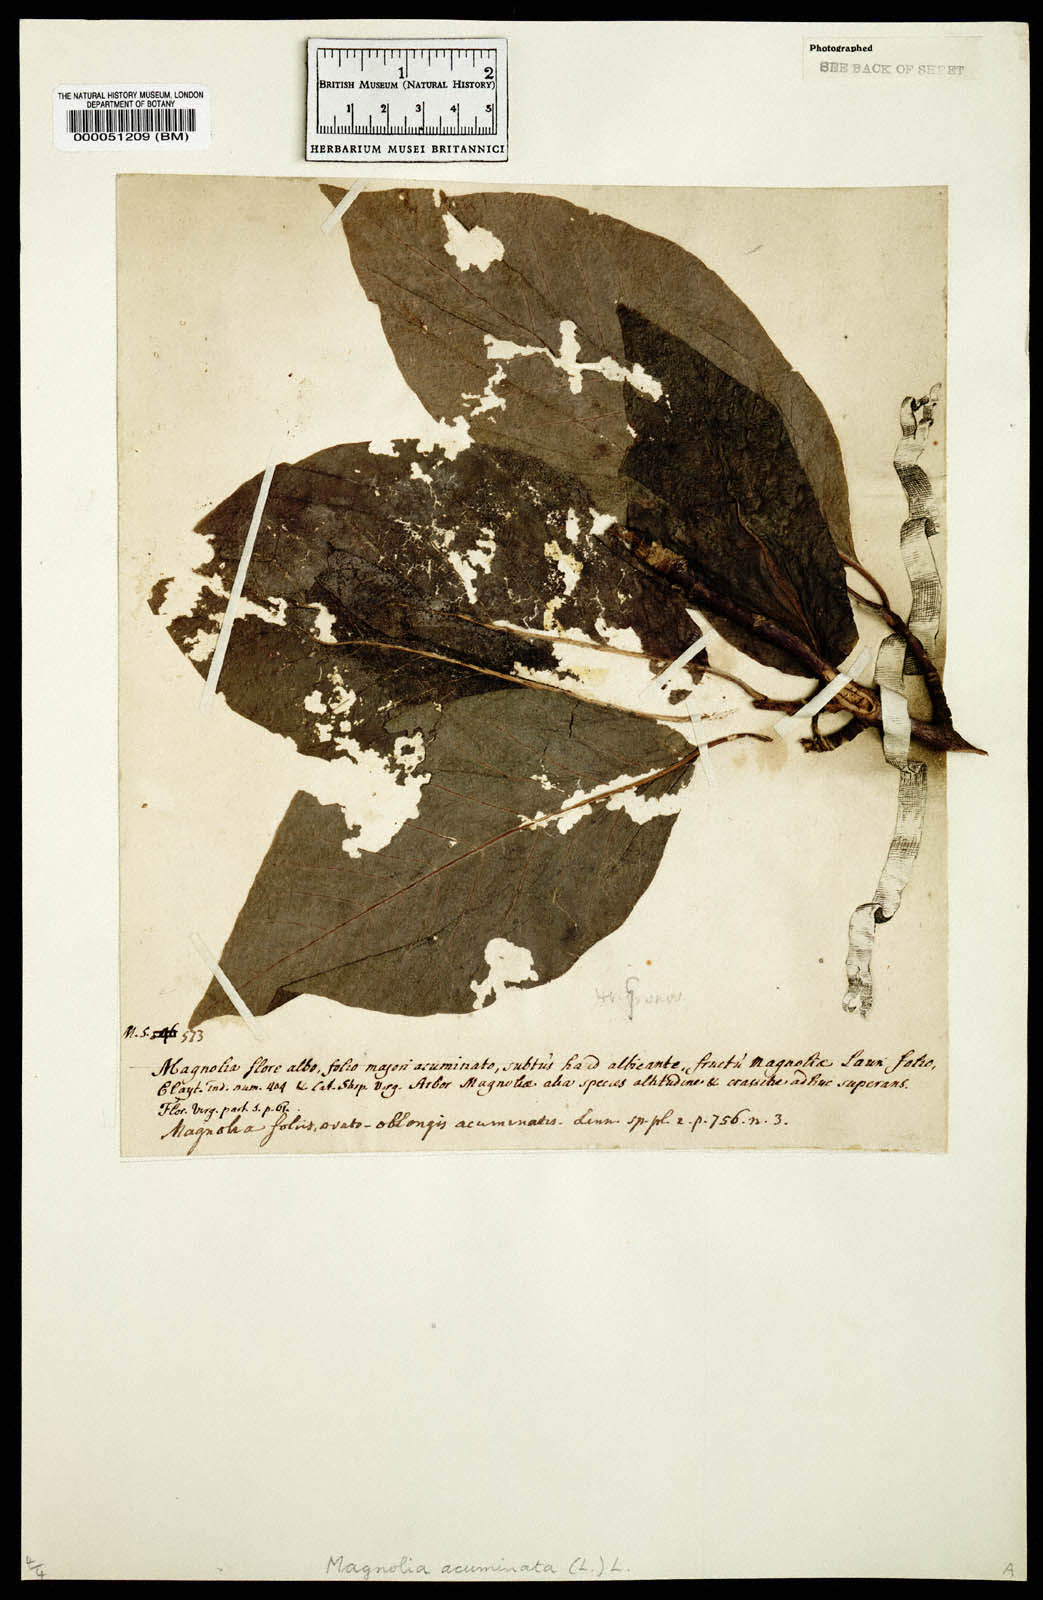 THE NATURAL HISTORY MUSEUM, LONDON
DEPARTMENT OF BOTANY
000051209 (BM)
1 2
BRITISH MUSEUM (NATURAL HISTORY)
1 2 3 4 5
HERBARIUM MUSEI BRITANNICI
Photographed
SEE BACK OF SHEET
Hb. Gronov.
N. 5. 546 573
Magnolia flore albo, folio majori acuminato, subtus haud albicante, fructu Magnoliæ Laur. folio,
Clayt. ind. num. 404 & Cat. Ship. Virg. Arbor Magnoliæ alia species altitudine & crassitie adhuc superans.
Flor. Virg. part. 1. p. 61.
Magnolia foliis, ovato-oblongis acuminatis. Linn. sp. pl. 2. p. 756. n. 3.
4/4
Magnolia acuminata (L.) L.
A